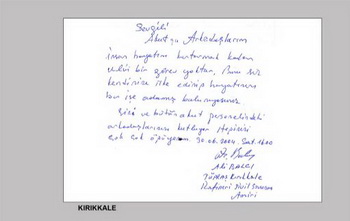 Sevgili
Akut'çu Arkadaşlarım
İnsan hayatını kurtarmak kadar
bir görev yoktur. Bunu siz
kendinize ilke edinip hayatınızı
bu işe adamış bulunuyorsunuz
Sizi ve bütün akut personelindeki
arkadaşlarınızı kutluyor Hepinizi
çok çok öpüyorum. 30.06.2004
Ali
Kırıkkale
Amiri
KIRIKKALE